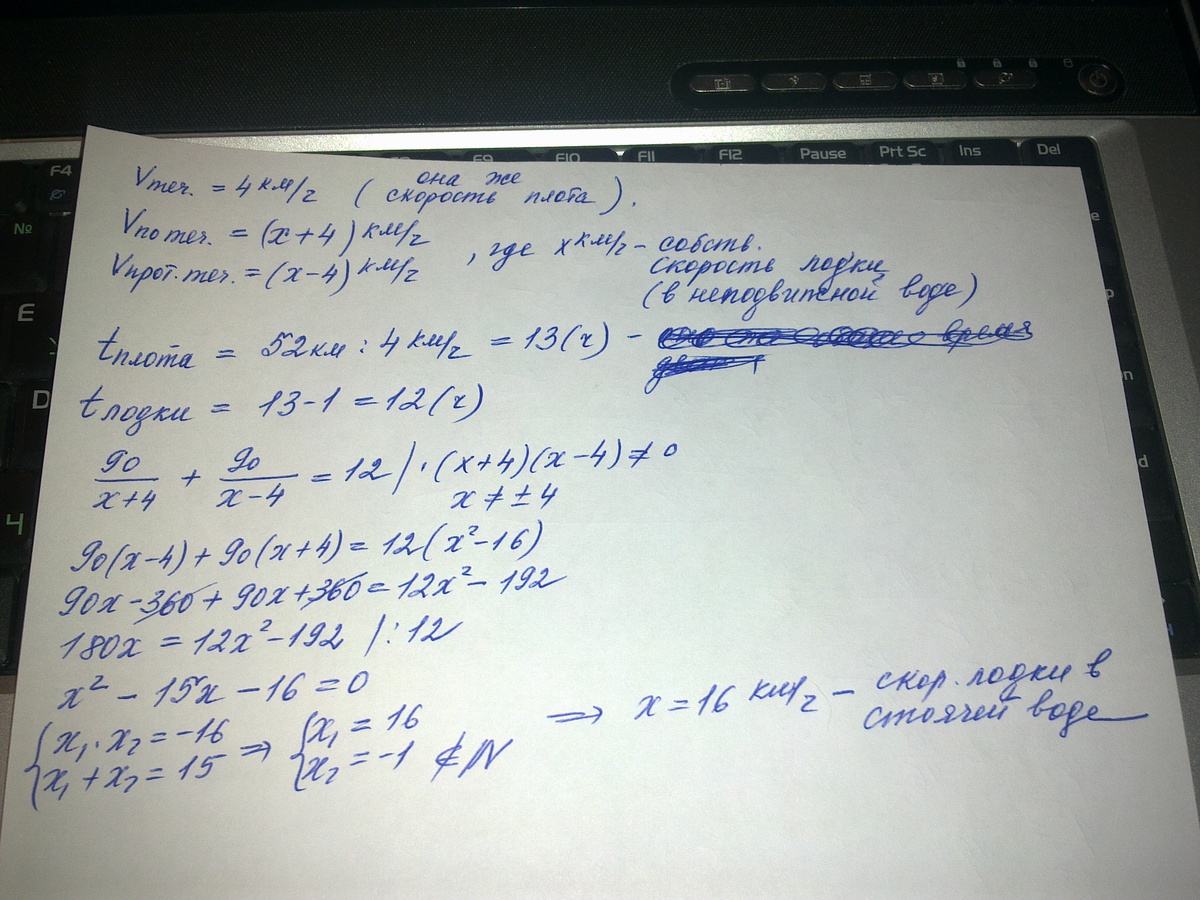 F4 F9 F10 F11 F12 Pause Prt Sc Ins Del
№
E
D
Ч
Vтеч. = 4 км/г ( она же скорость плота ).
Vпо теч. = (x+4) км/г
Vпрот. теч. = (x-4) км/г , где x км/г - собств. скорость лодки (в неподвижной воде)
tплота = 52 км : 4 км/г = 13 (г) -
tлодки = 13-1 = 12 (г)
90/(x+4) + 90/(x-4) = 12 | · (x+4)(x-4) ≠ 0
x ≠ ± 4
90(x-4) + 90(x+4) = 12(x²-16)
90x - 360 + 90x + 360 = 12x² - 192
180x = 12x² - 192 | : 12
x² - 15x - 16 = 0
{ x₁ · x₂ = -16
x₁ + x₂ = 15 ⇒ { x₁ = 16
x₂ = -1 ∉ N ⇒ x = 16 км/г - скор. лодки в стоячей воде